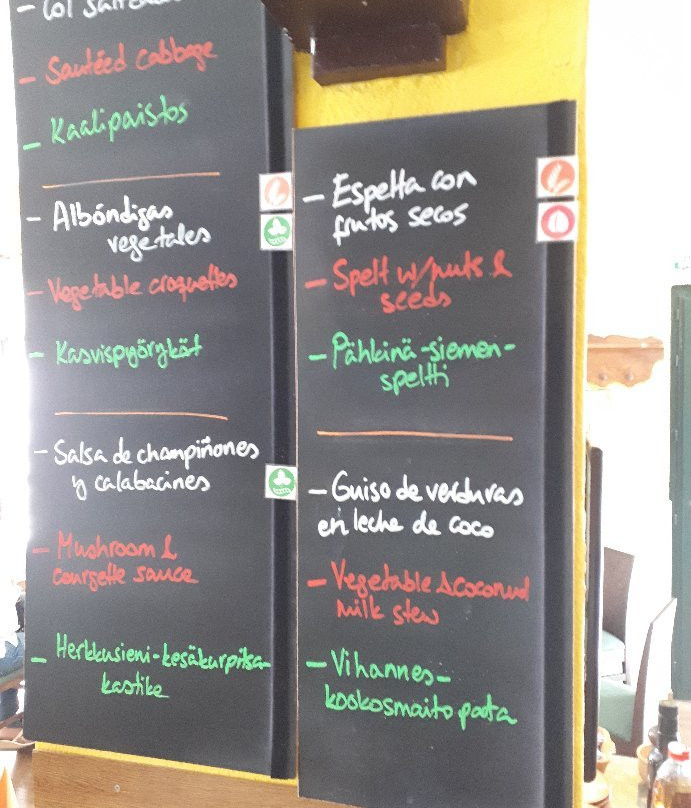 - Col salteada
- Sautéed cabbage
- Kaalipaistos
- Albóndigas
vegetales
- Vegetable croquettes
- Kasvispyörykät
- Salsa de champiñones
y calabacines
- Mushroom &
courgette sauce
- Herkkusieni-kesäkurpitsa-
kastike
- Espelta con
frutos secos
- Spelt w/nuts &
seeds
- Pähkinä-siemen-
speltti
- Guiso de verduras
en leche de coco
- Vegetable & coconud
milk stew
- Vihannes-
kookosmaito pata